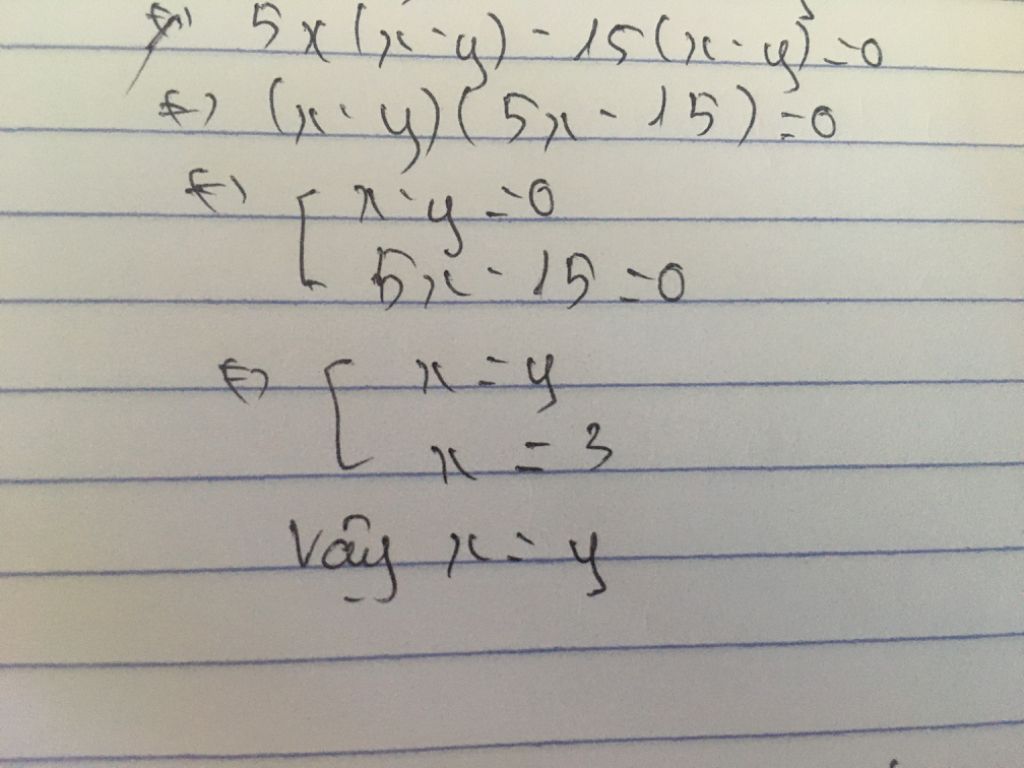 ⇔ 5x(x-y) - 15(x-y) = 0
⇔ (x-y)(5x - 15) = 0
⇔ [ x-y = 0
5x - 15 = 0
⇔ [ x = y
x = 3
Vậy x = y